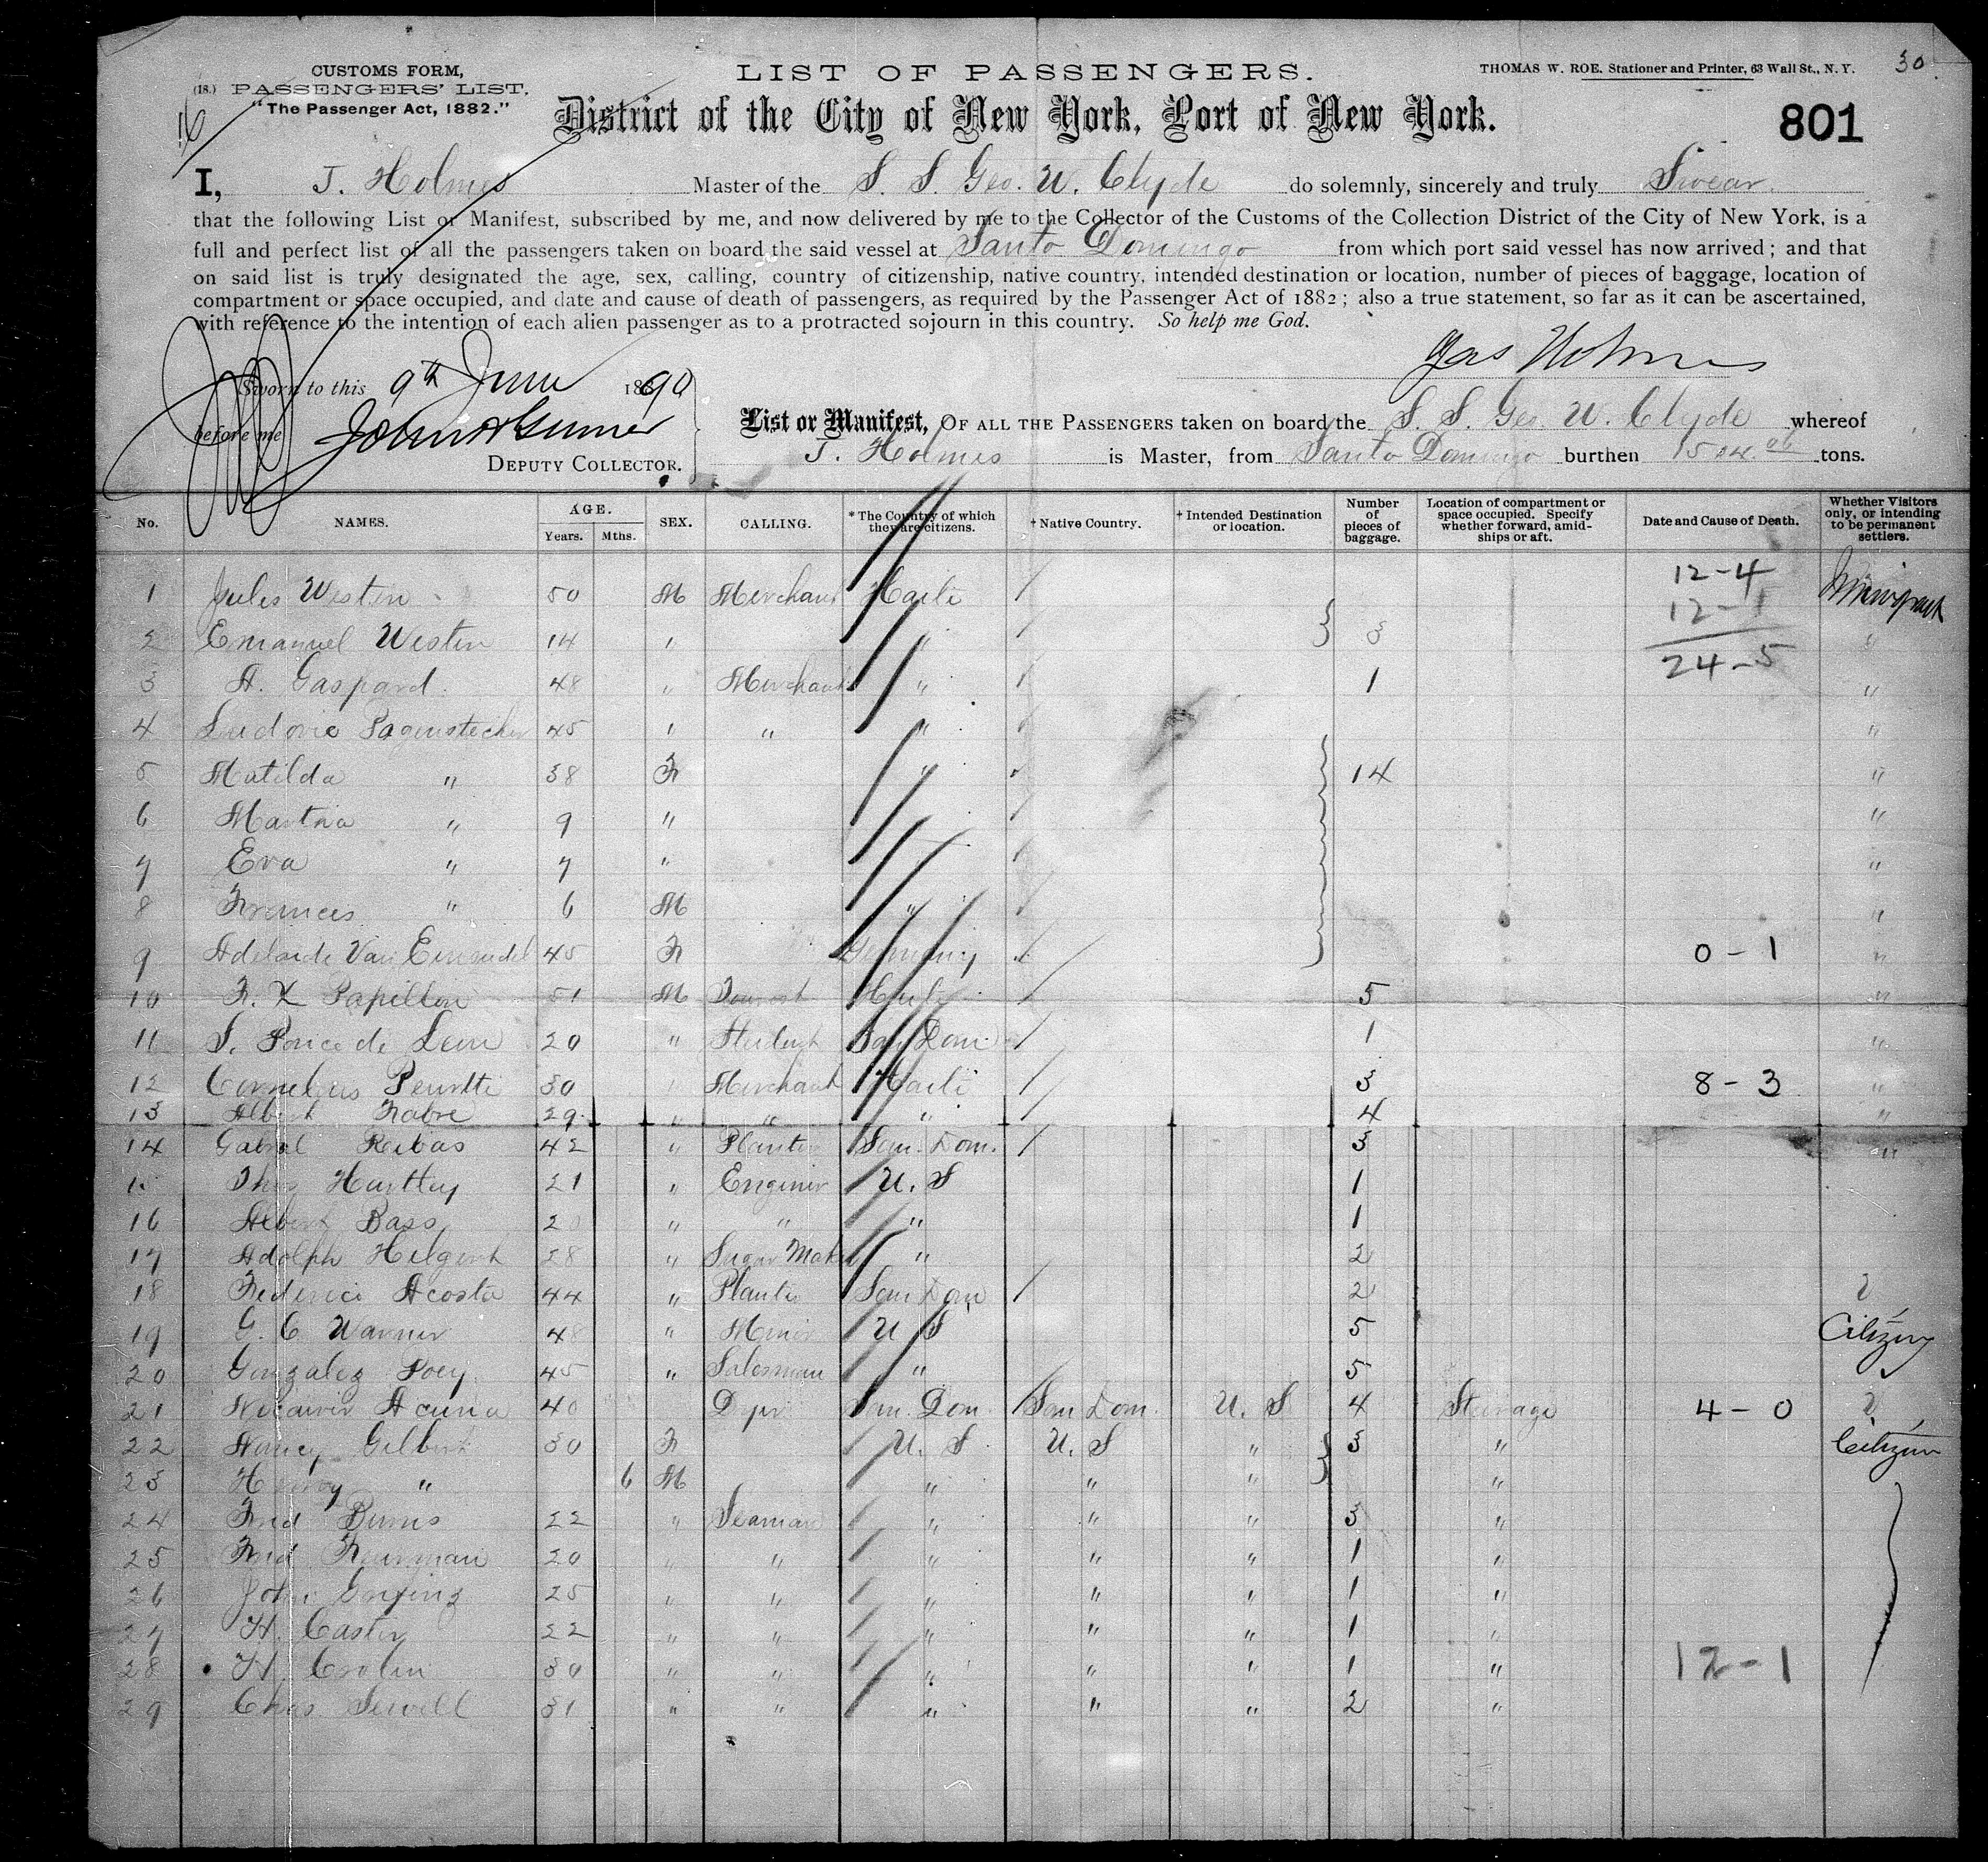 CUSTOMS FORM,
(18.) PASSENGERS' LIST.
"The Passenger Act, 1882."
LIST OF PASSENGERS.
THOMAS W. ROE. Stationer and Printer, 63 Wall St., N. Y.
30
16
District of the City of New York, Port of New York.
801
I, J. Holmes Master of the S. S. Geo. W. Clyde do solemnly, sincerely and truly Swear.
that the following List or Manifest, subscribed by me, and now delivered by me to the Collector of the Customs of the Collection District of the City of New York, is a
full and perfect list of all the passengers taken on board the said vessel at Santo Domingo from which port said vessel has now arrived; and that
on said list is truly designated the age, sex, calling, country of citizenship, native country, intended destination or location, number of pieces of baggage, location of
compartment or space occupied, and date and cause of death of passengers, as required by the Passenger Act of 1882; also a true statement, so far as it can be ascertained,
with reference to the intention of each alien passenger as to a protracted sojourn in this country. So help me God.
Jas Holmes
Sworn to this 9th June 1890
before me
DEPUTY COLLECTOR.
List or Manifest, OF ALL THE PASSENGERS taken on board the S. S. Geo. W. Clyde whereof
J. Holmes is Master, from Santo Domingo burthen 1504.06 tons.
No. NAMES. AGE. Years. Mths. SEX. CALLING. * The Country of which they are citizens. † Native Country. † Intended Destination or location. Number of pieces of baggage. Location of compartment or space occupied. Specify whether forward, amidships or aft. Date and Cause of Death. Whether Visitors only, or intending to be permanent settlers.
12-4
1 Jules Westen 50 M Merchant Haiti Immigrant
12-1
2 Emanuel Westen 14 " " 3 "
24-5
3 A. Gaspard 48 " Merchant " 1 "
4 Ludovic Pagenstecher 45 " " " "
5 Matilda " 38 F " 14 "
6 Martha " 9 " "
7 Eva " 7 " "
8 Frances " 6 M " "
9 Adelaide Van 45 F Germany 0-1 "
10 F. X Papillon 51 M Haiti 5 "
11 S. Ponce de Leon 20 " Student San Dom. 1 "
12 Cornelius 30 " Merchant Haiti 3 8-3 "
13 Albert Fabre 29 " " " 4 "
14 Gabriel Reibas 42 " Planter San. Dom. 3 "
15 Thos Hartley 21 " Engineer U. S 1
16 Albert Bass 20 " " " 1
17 Adolph Hilgert 28 " Sugar Maker " 2
18 Federico Acosta 44 " Planter San Dom 2
19 G. C. Warner 48 " Miner U S 5 Citizen
20 Gonzalez Poey 45 " Salesman " 5
21 Acuna 40 San. Dom. San Dom. U. S 4 Steerage 4-0
22 Nancy Gilbert 30 F U. S U. S " 3 " Citizen
23 Henry " 6 M " " " "
24 Fred Burns 22 " Seaman " " " 3 "
25 Fred 20 " " " " " 1 "
26 John 25 " " " " " 1 "
27 H. Caster 22 " " " " " 1 "
28 H. 30 " " " " " 1 " 12-1
29 Chas Sewell 31 " " " " " 2 "